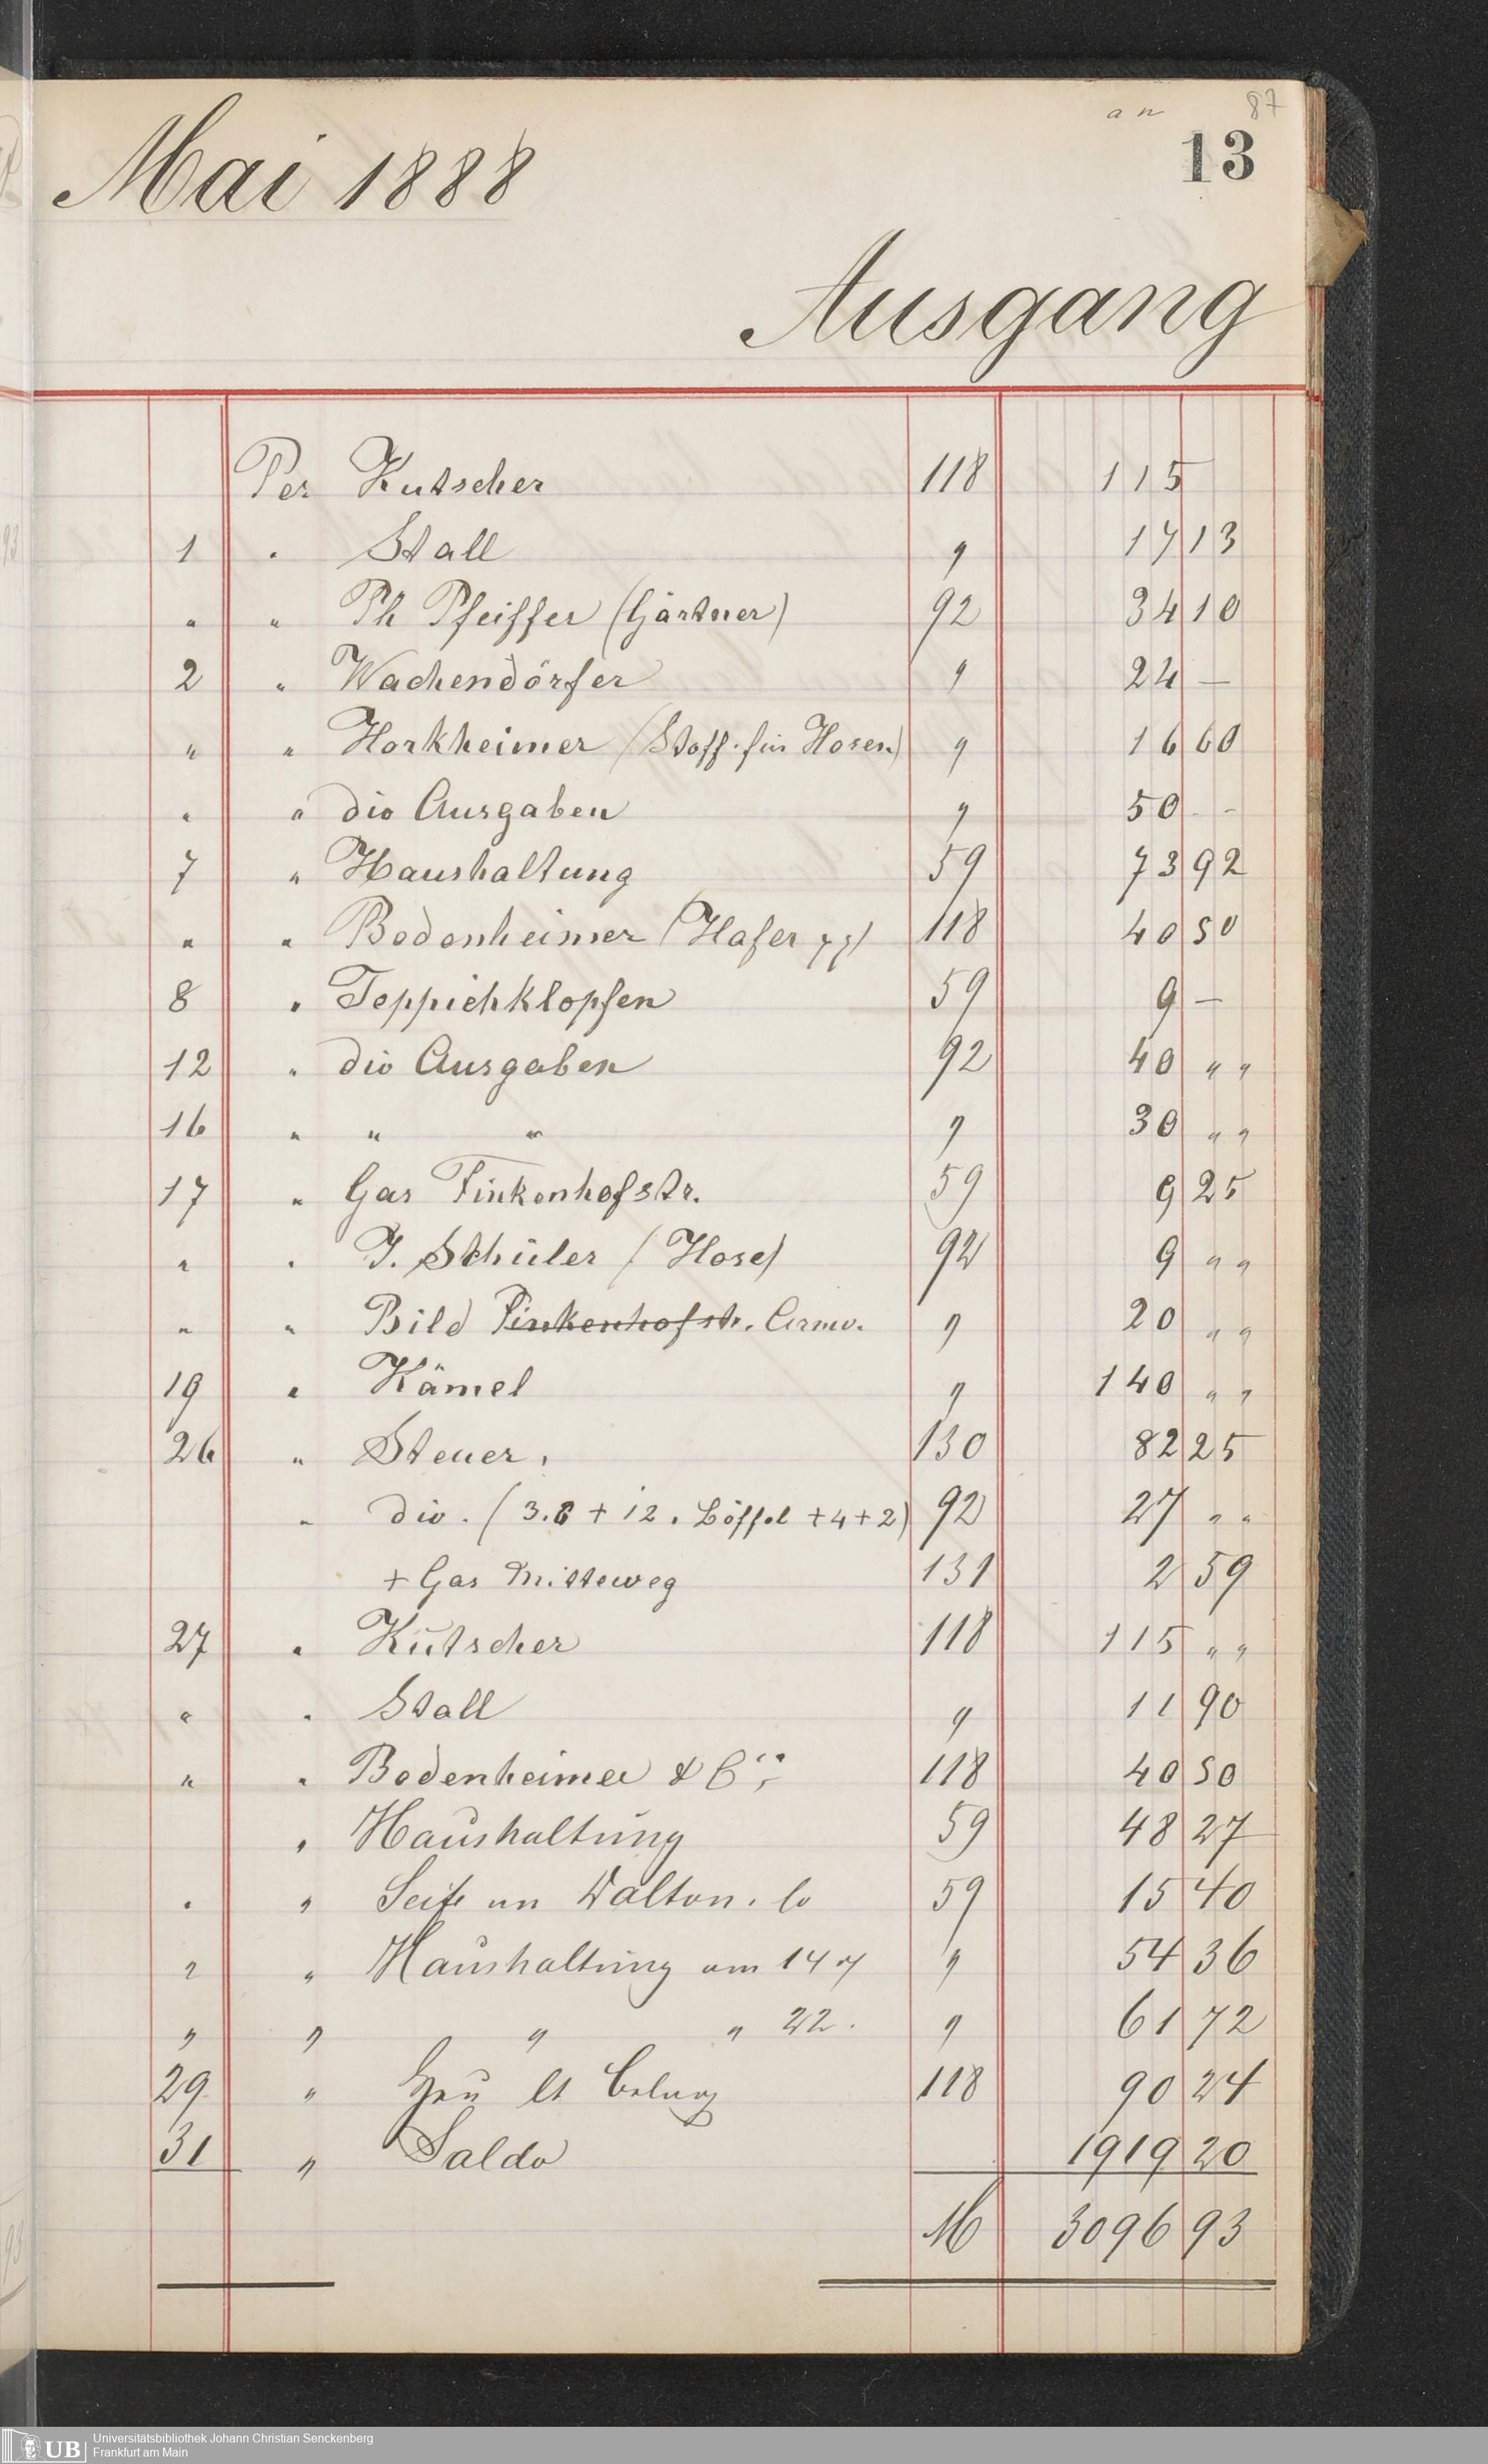 an 87
13
Mai 1888
Ausgang
Per Kutscher 118 115
1 " Stall " 17 13
" " Ph Pfeiffer (Gärtner) 92 34 10
2 " Wachendörfer " 24 —
" " Horkheimer (Stoff für Hosen) " 16 60
" " div Ausgaben " 50 - -
7 " Haushaltung 59 73 92
" " Bodenheimer (Hafer 118 40 50
8 " Teppichklopfen 59 9 —
12 " div Ausgaben 92 40 " "
16 " " " " 30 " "
17 " Gas Finkenhofstr. 59 9 25
" " J. Schüler (Hose) 92 9 " "
" " Bild Finkenhofstr. " 20 " "
19 " Kämel " 140 " "
26 " Steuer, 130 82 25
" div. (3.6 + 12. Löffel + 4 + 2) 92 27 " "
+ Gas Mitteweg 131 2 59
27 " Kutscher 118 115 " "
" " Stall " 11 90
" " Bodenheimer & Cie 118 40 50
" Haushaltung 59 48 27
" " Seife an Walton. Co 59 15 40
" " Haushaltung am 14 " 54 36
" " " " 22. " 61 72
29 " Heu lt 118 90 24
31 " Saldo 1919 20
M 3096 93
UB Universitätsbibliothek Johann Christian Senckenberg
Frankfurt am Main